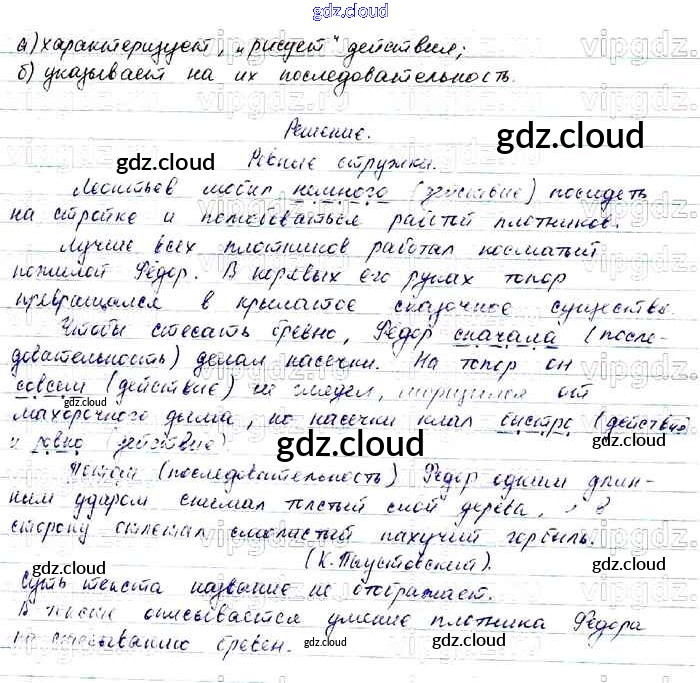 gdz.cloud
а) характеризует, „рисует“ действия;
б) указывает на их последовательность.
Решение.
gdz.cloud
gdz.cloud
Ровние стружки.
Леонтьев любил немного (действие) посидеть
на стройке и полюбоваться работой плотников.
Лучше всех плотников работал косматый
пожилой Фёдор. В корявых его руках топор
превращался в крылатое сказочное существо.
Чтобы стесать бревно, Фёдор сначала (после-
довательность) делал насечки. На топор он
совсем (действие) не глядел, морщился от
gdz.cloud
махорочного дыма, но насечки клал быстро (действие)
и ровно (действие).
gdz.cloud
Потом (последовательность) Фёдор одним длин-
ным ударом снимал толстый слой дерева, и в
сторону отлетал смолистый пахучий горбыль.
(К. Паустовский).
gdz.cloud
Суть текста название не отображает.
В тексте описывается умение плотника Фёдора
по тёсыванию бревен.
gdz.cloud
gdz.cloud
gdz.cloud